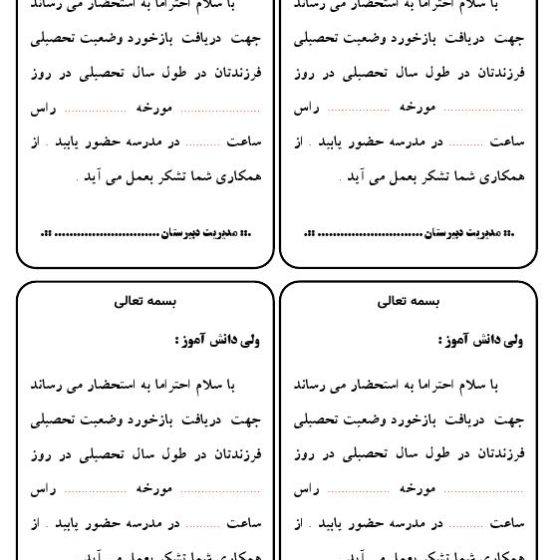 با سلام احتراما به استحضار می رساند
جهت دریافت بازخورد وضعیت تحصیلی
فرزندتان در طول سال تحصیلی در روز
.................... مورخه ................ راس
ساعت ......... در مدرسه حضور یابید . از
همکاری شما تشکر بعمل می آید .
.:: مدیریت دبیرستان ............................ ::.
با سلام احتراما به استحضار می رساند
جهت دریافت بازخورد وضعیت تحصیلی
فرزندتان در طول سال تحصیلی در روز
.................... مورخه ................ راس
ساعت ......... در مدرسه حضور یابید . از
همکاری شما تشکر بعمل می آید .
.:: مدیریت دبیرستان ............................ ::.
بسمه تعالی
ولی دانش آموز :
با سلام احتراما به استحضار می رساند
جهت دریافت بازخورد وضعیت تحصیلی
فرزندتان در طول سال تحصیلی در روز
.................... مورخه ................ راس
ساعت ......... در مدرسه حضور یابید . از
همکاری شما تشکر بعمل می آید .
بسمه تعالی
ولی دانش آموز :
با سلام احتراما به استحضار می رساند
جهت دریافت بازخورد وضعیت تحصیلی
فرزندتان در طول سال تحصیلی در روز
.................... مورخه ................ راس
ساعت ......... در مدرسه حضور یابید . از
همکاری شما تشکر بعمل می آید .